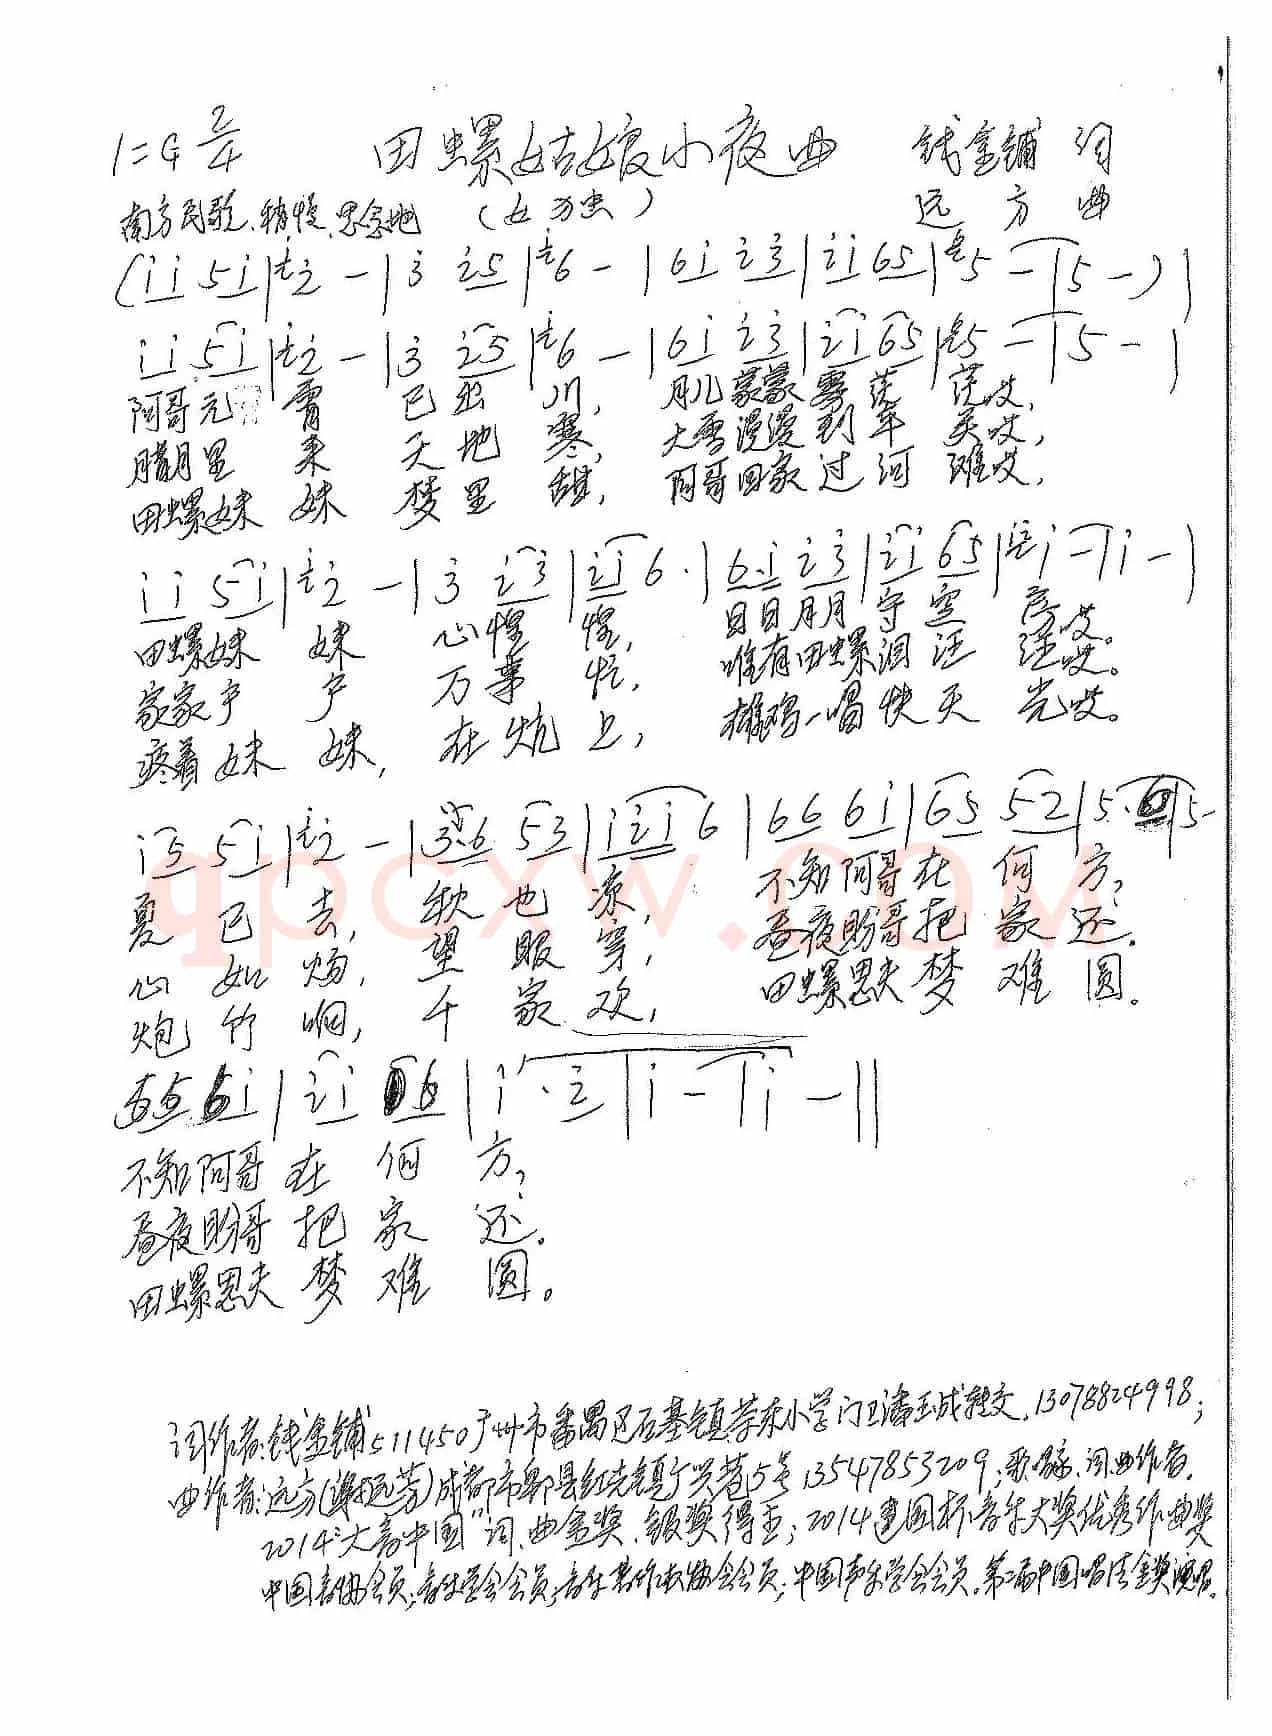 1=G 2/4 田螺姑娘小夜曲 钱金铺 词
南方民歌、稍慢、思念地 (女万杰) 远方 曲
(i i 5 i | 2 - | 3 2 5 | 6 - | 6 i 2 3 | 2 i 6 5 | 5 - | 5 - ) |
i i 5 i | 2 - | 3 2 5 | 6 - | 6 i 2 3 | 2 i 6 5 | 5 - | 5 - |
阿哥元宵 已出川, 月儿蒙蒙雾茫茫哎,
腊月里来 天地寒, 大雪漫漫到年关哎,
田螺妹妹 梦里甜, 阿哥回家过河难哎,
i i 5 i | 2 - | 3 2 3 | 2 i 6 · | 6 · i 2 3 | 2 i 6 5 | i - | i - |
田螺妹妹 心惶惶, 日日月月守空房哎。
家家户户 万事忙, 唯有田螺泪汪汪哎。
疼着妹妹, 在炕上, 雄鸡一唱快天光哎。
i 5 5 i | 2 - | 3 6 5 3 | i 2 i 6 | 6 6 6 i | 6 5 5 2 | 5 · 6 | 5 -
qpcxw.com
夏已去, 秋也凉, 不知阿哥在何方?
心如炀, 望眼穿, 昼夜盼哥把家还.
炮竹响, 千家欢, 田螺思夫梦难圆。
5 5 6 i | 2 i 6 | i · 2 | i - | i - ||
不知阿哥在何方?
昼夜盼哥把家还.
田螺思夫梦难圆。
词作者:钱金铺511450广州市番禺区石基镇茶东小学门卫潘玉成转交. 13078824998;
曲作者:远方(谢远芳)成都市郫县红光镇广兴巷5号 13547853209;歌唱家、词曲作者.
2014"大音中国"词、曲金奖、银奖得主; 2014建国杯音乐大奖优秀作曲奖
中国音协会员;音乐学会会员;音乐著作权协会会员;中国声乐学会会员.第二届中国唱法金奖